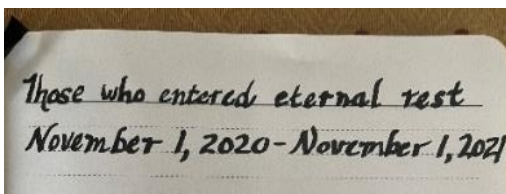 Those who entered eternal rest
November 1, 2020-November 1, 2021